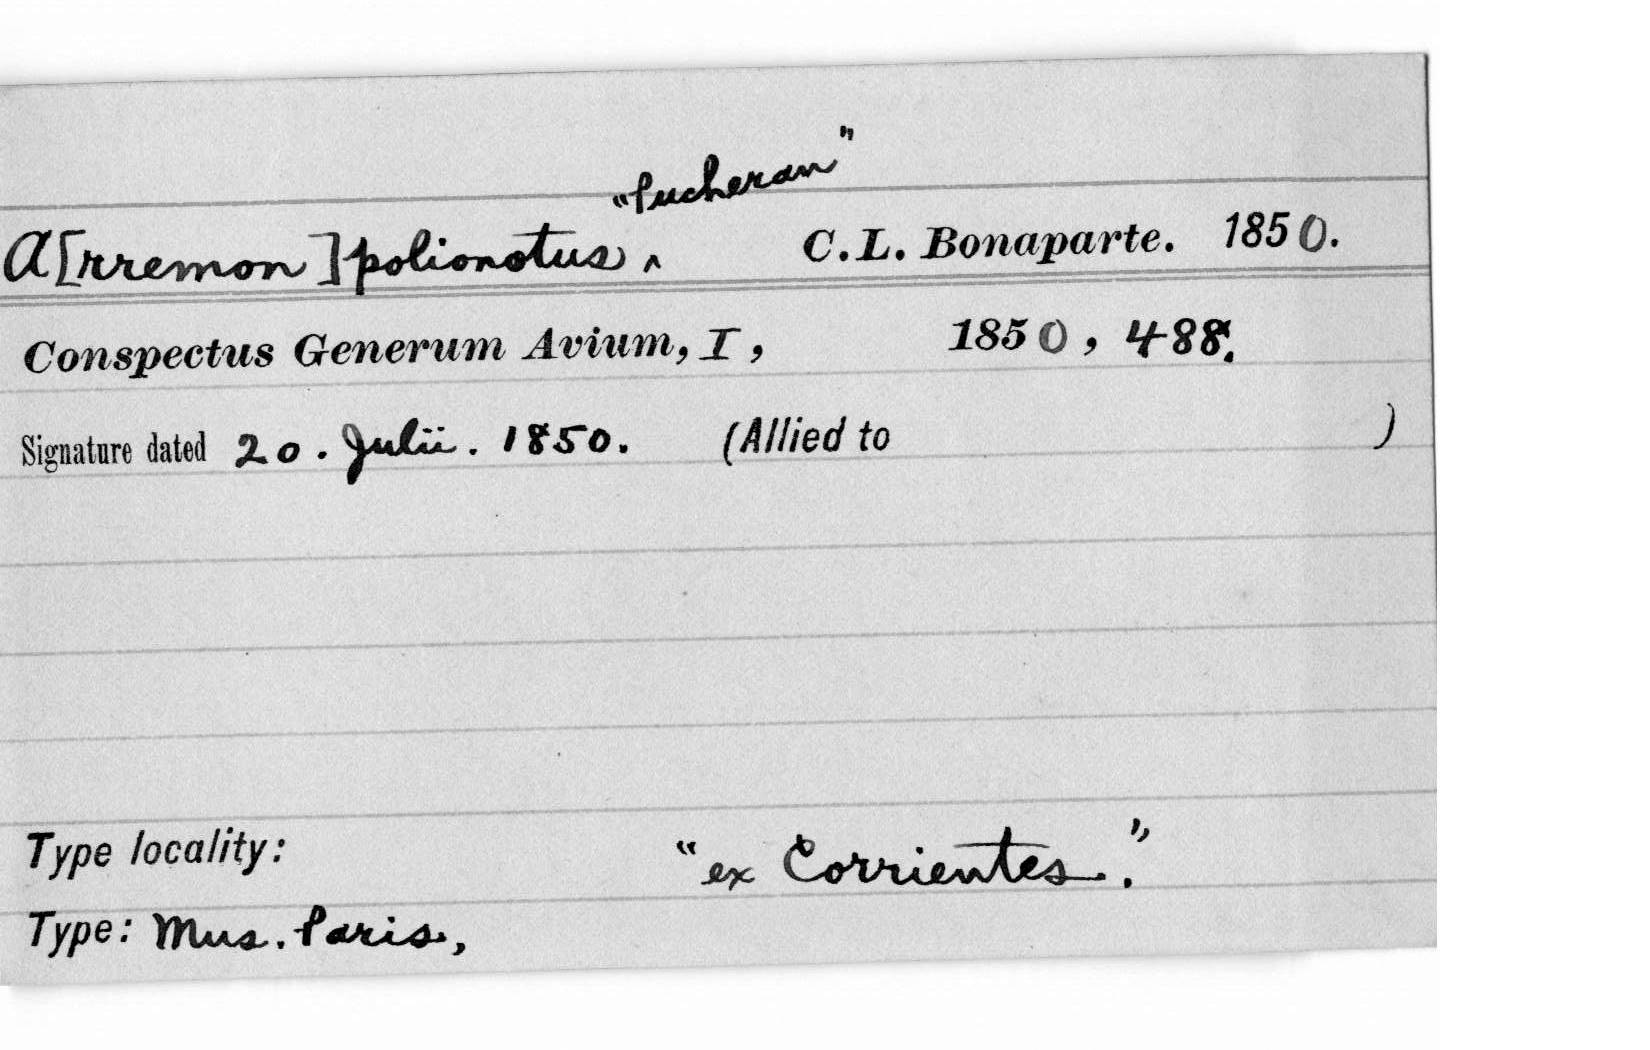 "Pucheran"
A[rremon] polionotus ^ C.L. Bonaparte. 1850.
Conspectus Generum Avium, I, 1850, 488.
Signature dated 20. Julii. 1850. (Allied to )
Type locality: "ex Corrientes."
Type: Mus. Paris.,